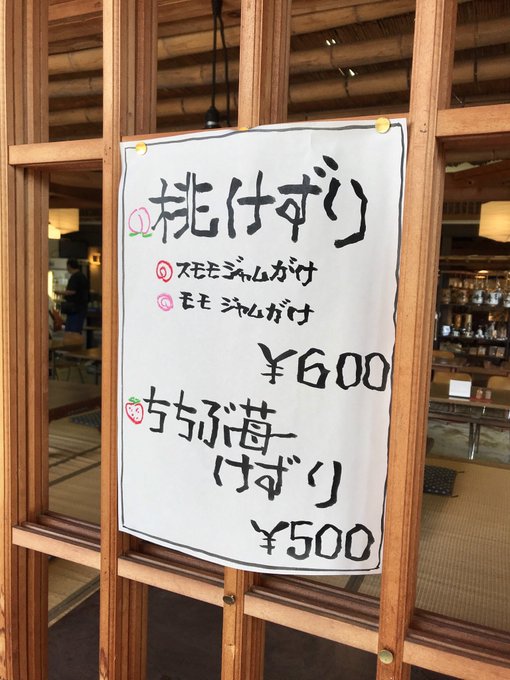 桃けずり
スモモジャムがけ
モモジャムがけ
¥600
ちちぶ苺
けずり
¥500